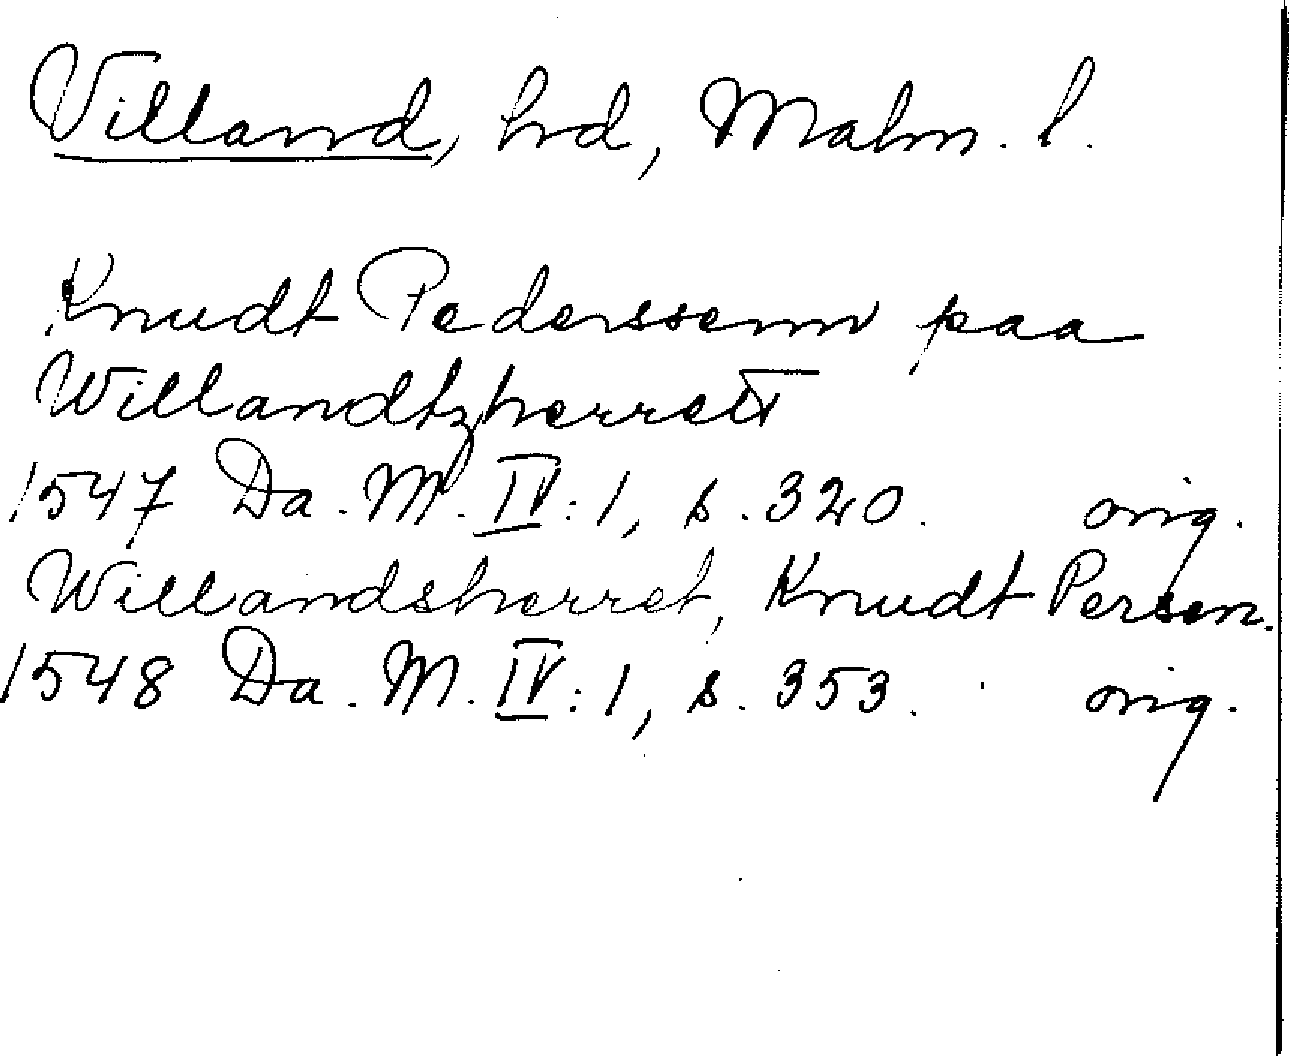 Villand, hd, Malm. l.
Knudt Pederssenn paa
Willandtzherrett
1547 Da. M. IV: 1, s. 320. orig.
Willandsherret, Knudt Persen.
1548 Da. M. IV: 1, s. 353. orig.